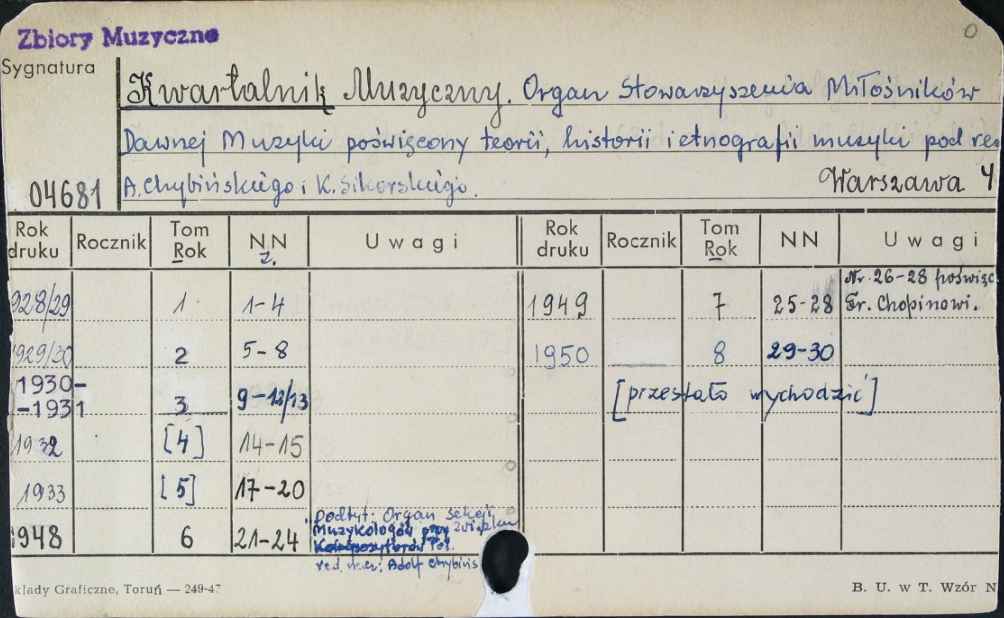 Zbiory Muzyczne
0
Sygnatura
Kwartalnik Muzyczny. Organ Stowarzyszenia Miłośników
Dawnej Muzyki poświęcony teorii, historii i etnografii muzyki pod re
A. Chybińskiego i K. Sikorskiego.
04681
Warszawa 4
Rok druku Rocznik Tom Rok NN z. Uwagi Rok druku Rocznik Tom Rok NN Uwagi
928/29 1 1-4 1949 7 25-28 Nr. 26-28 poświęc. Fr. Chopinowi.
1929/30 2 5-8 1950 8 29-30
1930-
-1931 3 9-12/13 [przestało wychodzić]
1932 [4] 14-15
1933 [5] 17-20
1948 6 21-24
Podtyt: Organ Sekcji
Muzykologów przy Związku
Kompozytorów Pol.
red. nacz: Adolf Chybińs
kłady Graficzne, Toruń — 249-47
B. U. w T. Wzór N